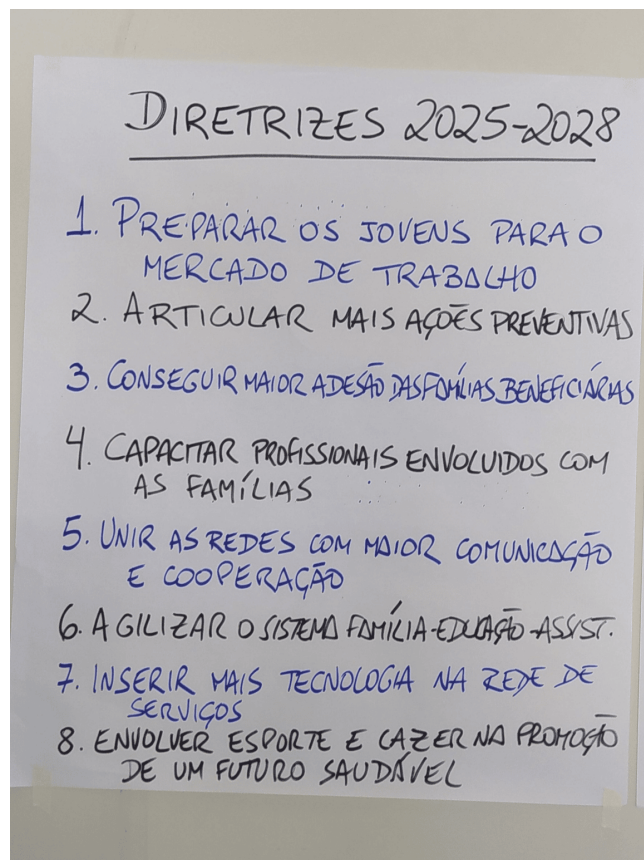 DIRETRIZES 2025-2028
1. PREPARAR OS JOVENS PARA O
MERCADO DE TRABALHO
2. ARTICULAR MAIS AÇÕES PREVENTIVAS
3. CONSEGUIR MAIOR ADESÃO DAS FAMÍLIAS BENEFICIÁRIAS
4. CAPACITAR PROFISSIONAIS ENVOLVIDOS COM
AS FAMÍLIAS
5. UNIR AS REDES COM MAIOR COMUNICAÇÃO
E COOPERAÇÃO
6. AGILIZAR O SISTEMA FAMÍLIA-EDUCAÇÃO-ASSIST.
7. INSERIR MAIS TECNOLOGIA NA REDE DE
SERVIÇOS
8. ENVOLVER ESPORTE E LAZER NA PROMOÇÃO
DE UM FUTURO SAUDÁVEL